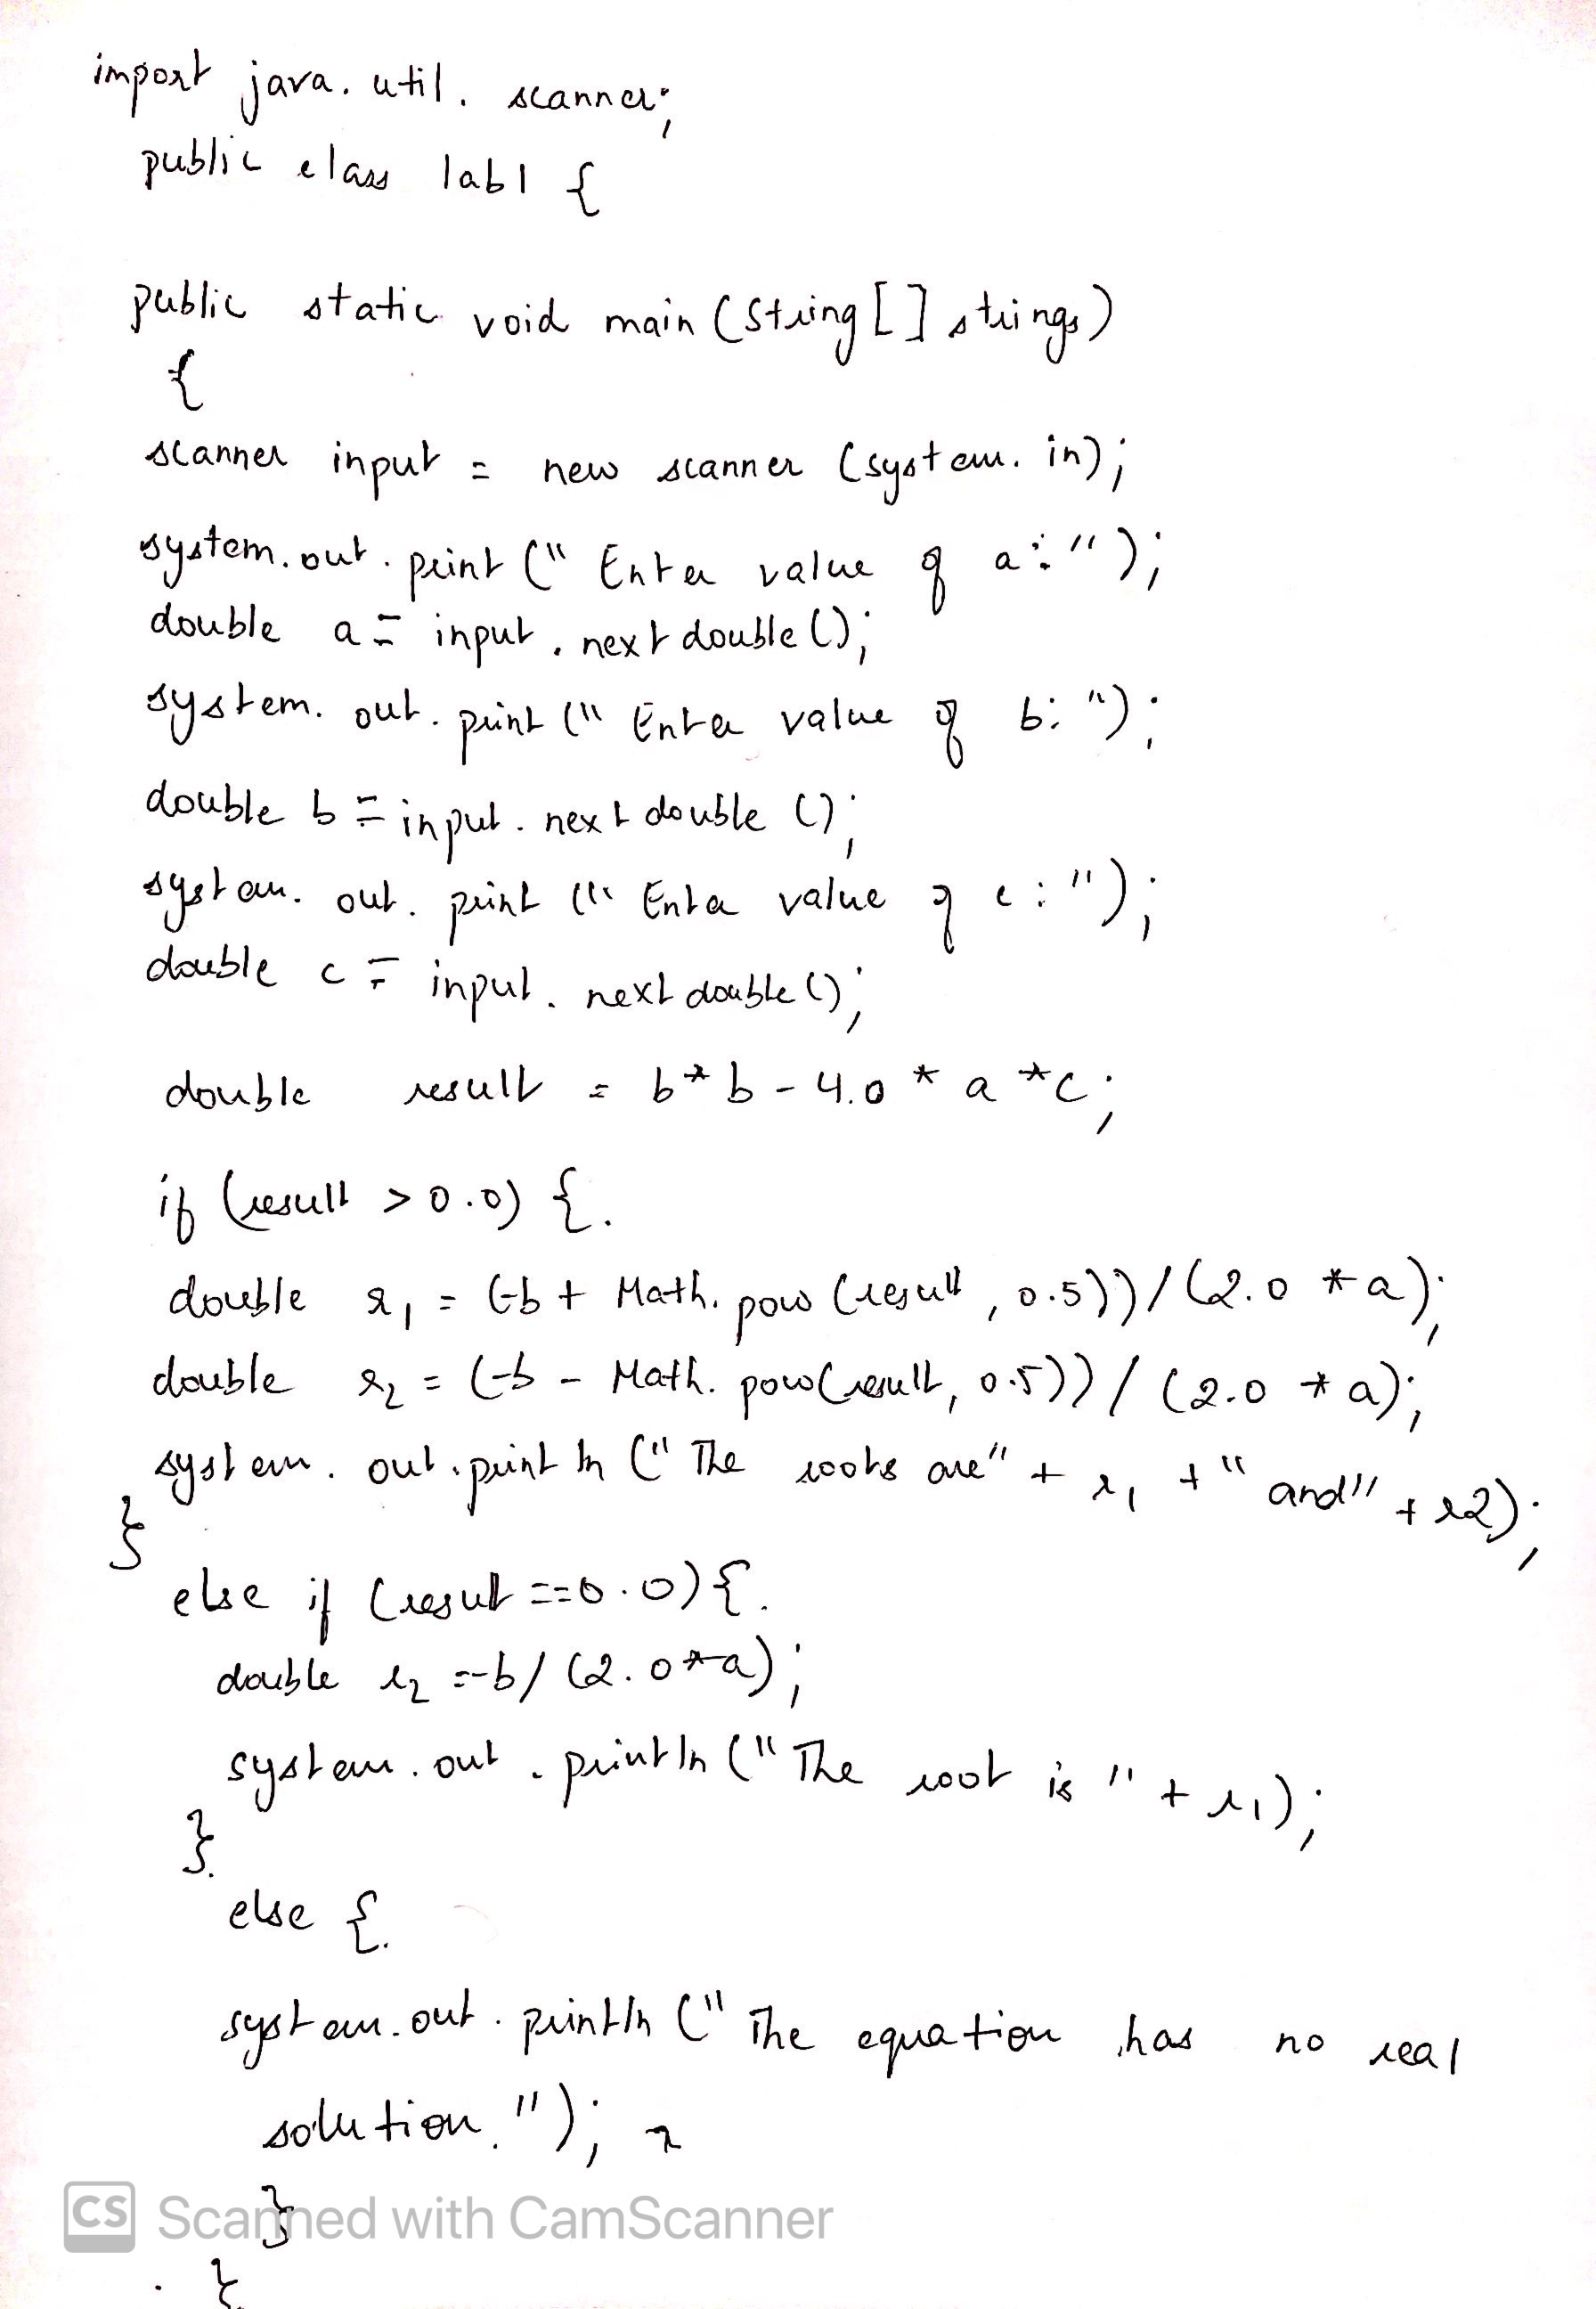 import java. util. scanner;
public class lab1 {
public static void main (String [] strings)
{
scanner input = new scanner (system. in);
system. out. print (" Enter value of a: ");
double a = input. next double ();
system. out. print (" Enter value of b: ");
double b = input. next double ();
system. out. print (" Enter value of c: ");
double c = input. next double ();
double result = b * b - 4.0 * a * c;
if (result > 0.0) {.
double r1 = (-b + Math. pow (result, 0.5)) / (2.0 * a);
double r2 = (-b - Math. pow (result, 0.5)) / (2.0 * a);
system. out. println (" The roots are" + r1 + " and" + r2);
}
else if (result == 0.0) {.
double r2 = -b / (2.0 * a);
system. out. println (" The root is " + r1);
}.
else {.
system. out. println (" The equation has no real
solution. ");
}
}
CS Scanned with CamScanner